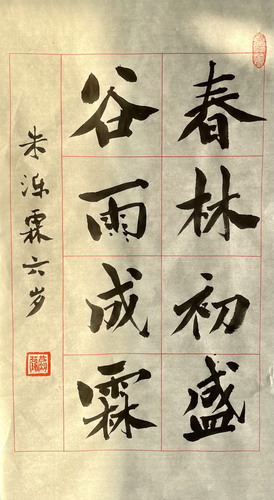 春林初盛
谷雨成霖
朱泺霖六岁